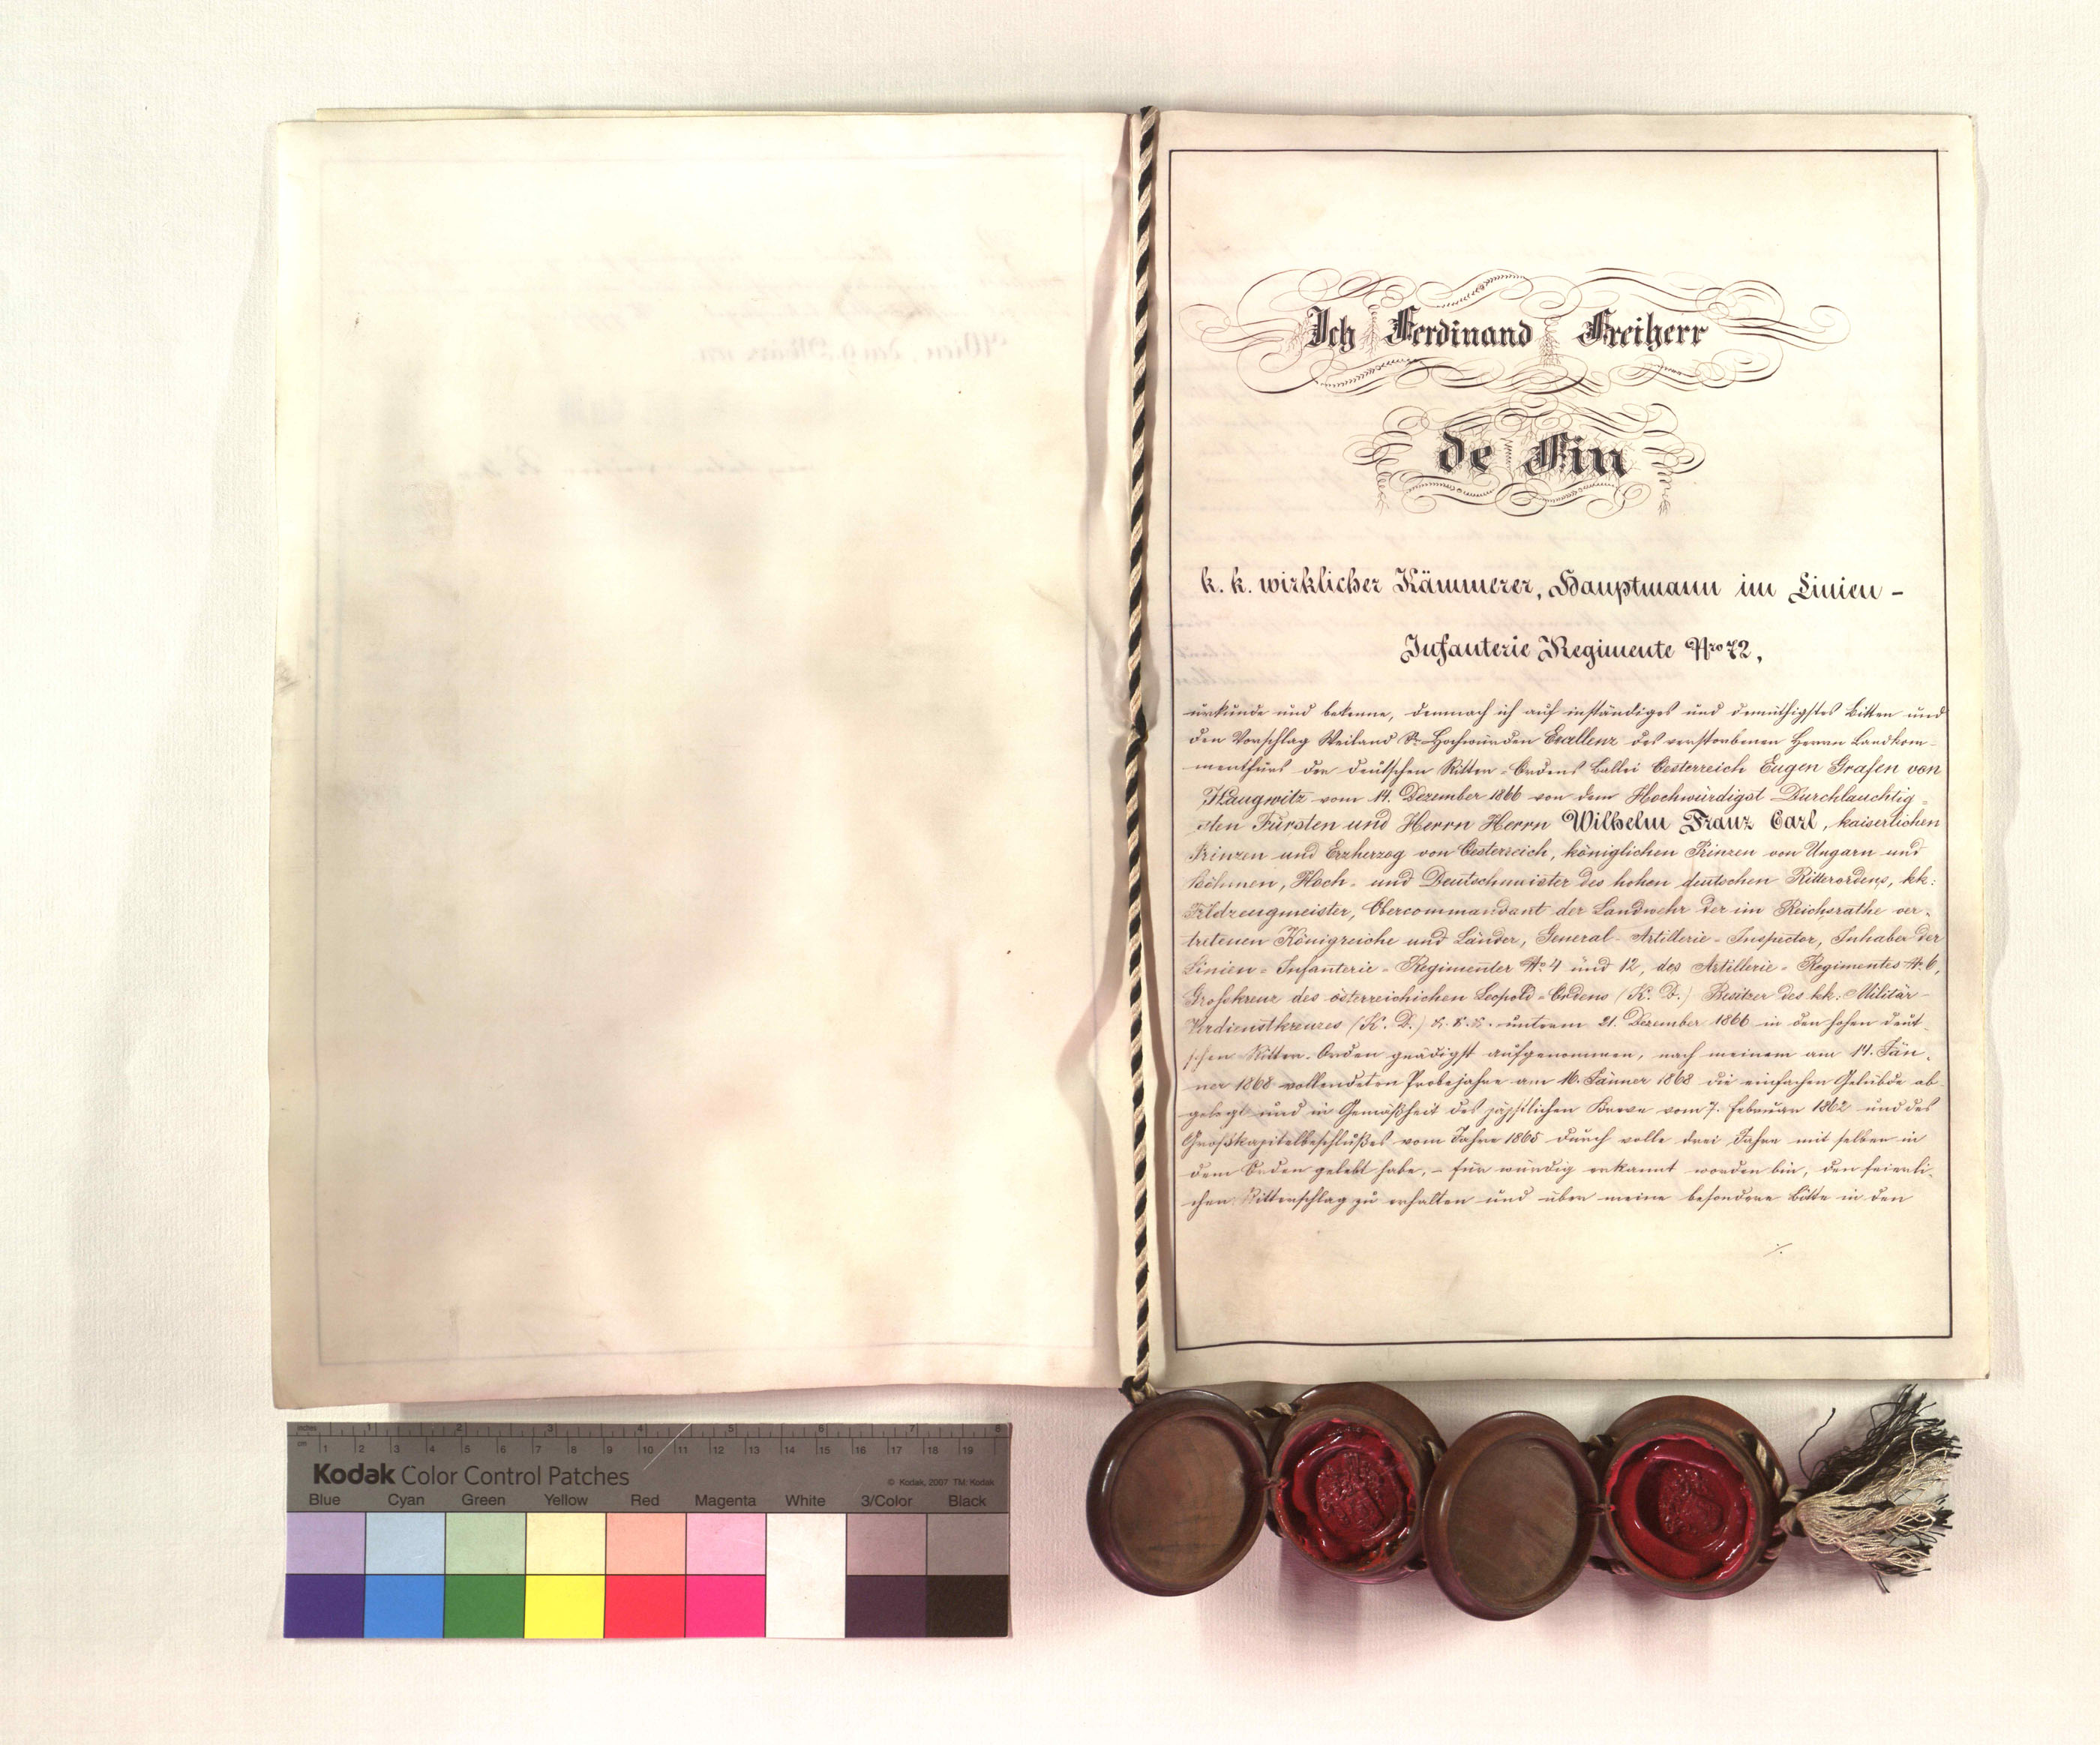 Ich Ferdinand Freiherr
de Fin
k. k. wirklicher Kämmerer, Hauptmann im Linien-
Infanterie Regimente Nro 72,
urkunde und bekenne, demnach ich auf inständiges und demüthigstes Bitten und
den Vorschlag Weiland Sr Hochwürden Excellenz des verstorbenen Herrn Landkom-
menthurs der deutschen Ritter-Ordens Ballei Oesterreich Eugen Grafen von
Haugwitz vom 14. Dezember 1866 von dem Hochwürdigst Durchlauchtig-
sten Fürsten und Herrn Herrn Wilhelm Franz Carl, kaiserlichen
Prinzen und Erzherzog von Oesterreich, königlichen Prinzen von Ungarn und
Böhmen, Hoch- und Deutschmeister des hohen deutschen Ritterordens, kk:
Feldzeugmeister, Obercommandant der Landwehr der im Reichsrathe ver-
tretenen Königreiche und Länder, General-Artillerie-Inspector, Inhaber der
Linien-Infanterie-Regimenter No 4 und 12, des Artillerie-Regimentes No 6,
Grosskreuz des österreichichen Leopold-Ordens (K. D.) Besitzer des kk. Militär-
Verdienstkreuzes (K. D.) unterm 21. Dezember 1866 in den hohen deut-
schen Ritter-Orden gnädigst aufgenommen, nach meinem am 14. Jän-
ner 1868 vollendeten Probejahre am 16. Jänner 1868 die einfachen Gelübde ab-
gelegt und in Gemäßheit des päpstlichen Breve vom 7. Februar 1862 und des
Großkapitelbeschlußes vom Jahre 1865 durch volle drei Jahre mit selben in
dem Orden gelebt habe, - für würdig erkannt worden bin, den feierli-
chen Ritterschlag zu erhalten und über meine besondere Bitte in den
./.
inches 1 2 3 4 5 6 7 8
cm 1 2 3 4 5 6 7 8 9 10 11 12 13 14 15 16 17 18 19
Kodak Color Control Patches © Kodak, 2007 TM: Kodak
Blue Cyan Green Yellow Red Magenta White 3/Color Black